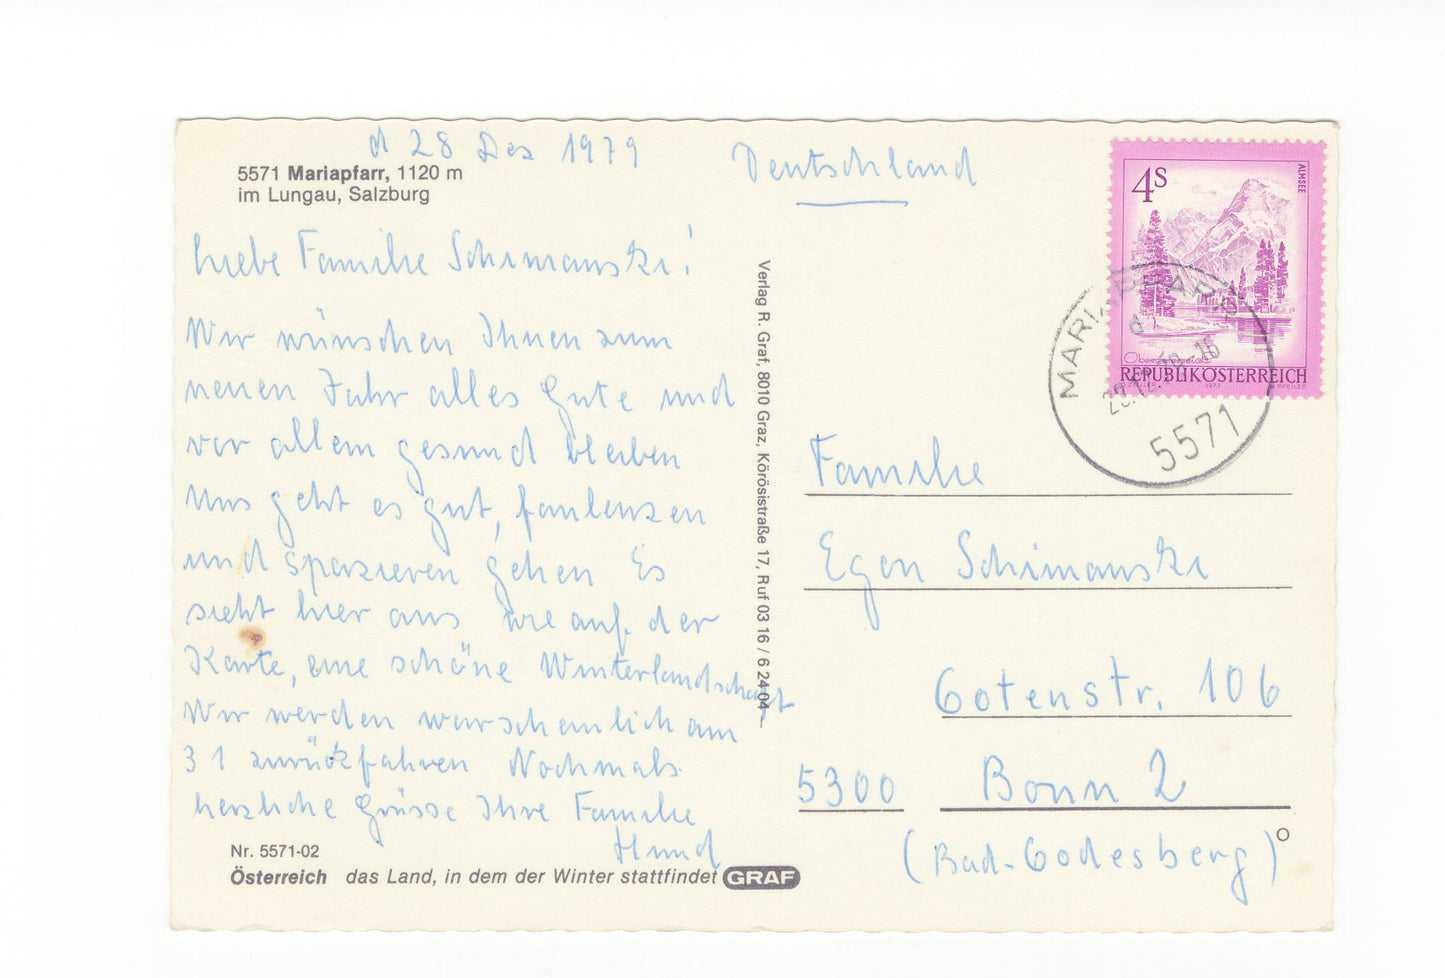 d 28 Dez 1979
5571 Mariapfarr, 1120 m
im Lungau, Salzburg
Liebe Familie Schimanski!
Wir wünschen Ihnen zum
neuen Jahr alles Gute und
vor allem gesund bleiben
Uns geht es gut, faulenzen
und spazieren gehen Es
sieht hier aus wie auf der
Karte, eine schöne Winterlandschaft
Wir werden warscheinlich am
31 zurückfahren Nochmals
herzliche Grüsse Ihre Familie
Hund
Nr. 5571-02
Österreich das Land, in dem der Winter stattfindet GRAF
Verlag R. Graf, 8010 Graz, Körösistraße 17, Ruf 03 16 / 6 24 04
Deutschland
4S
ALMSEE
Oberösterreich
REPUBLIK ÖSTERREICH
1973
MARIAPFARR
d
5571
Familie
Egon Schimanski
Gotenstr. 106
5300 Bonn 2
(Bad-Godesberg)